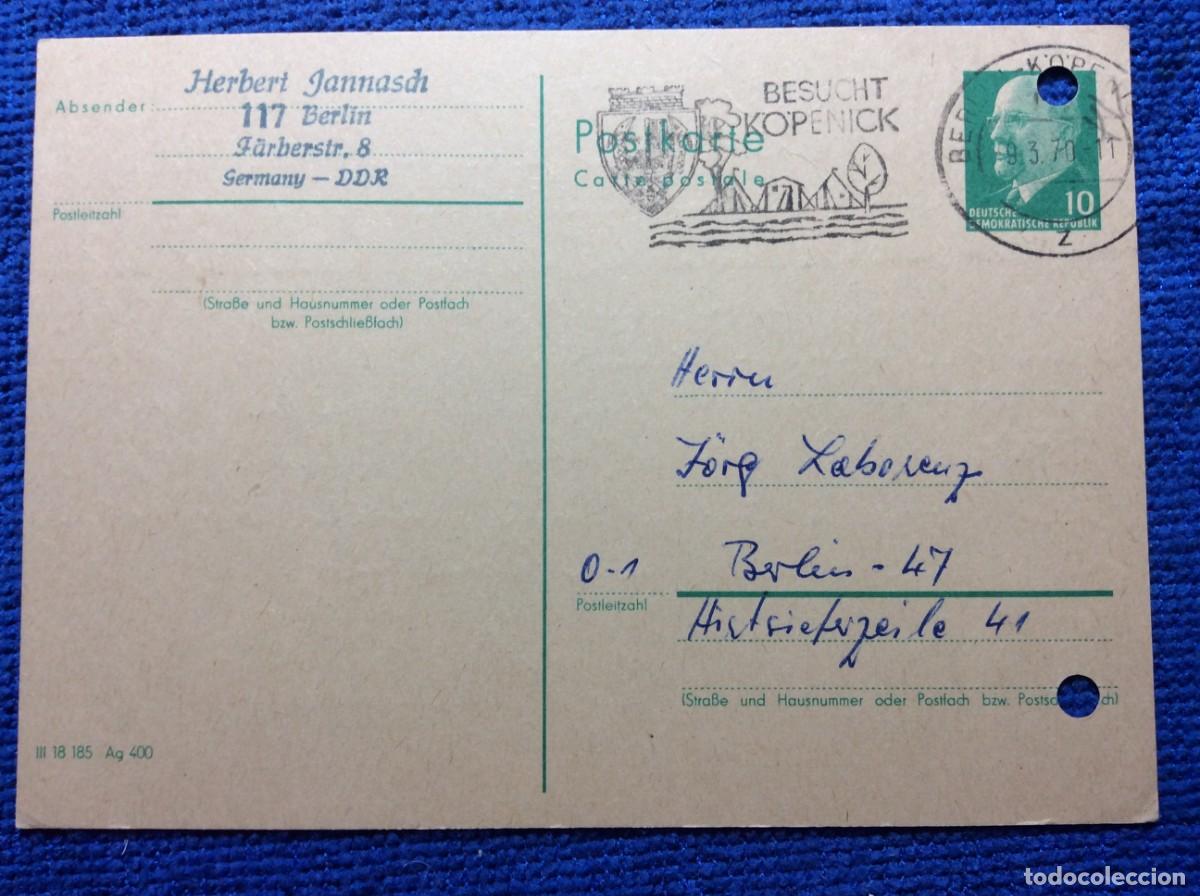 Herbert Jannasch
Absender:
117 Berlin
Färberstr. 8
Germany — DDR
Postleitzahl
(Straße und Hausnummer oder Postfach
bzw. Postschließfach)
III 18 185 Ag 400
Postkarte
Carte postale
BESUCHT
KÖPENICK
BERLIN KÖPE
9.3.70-11
z
10
DEUTSCHE
DEMOKRATISCHE REPUBLIK
Herrn
Jörg
0-1 Berlin - 47
Postleitzahl
41
(Straße und Hausnummer oder Postfach bzw. Postsc ch)
todocoleccion